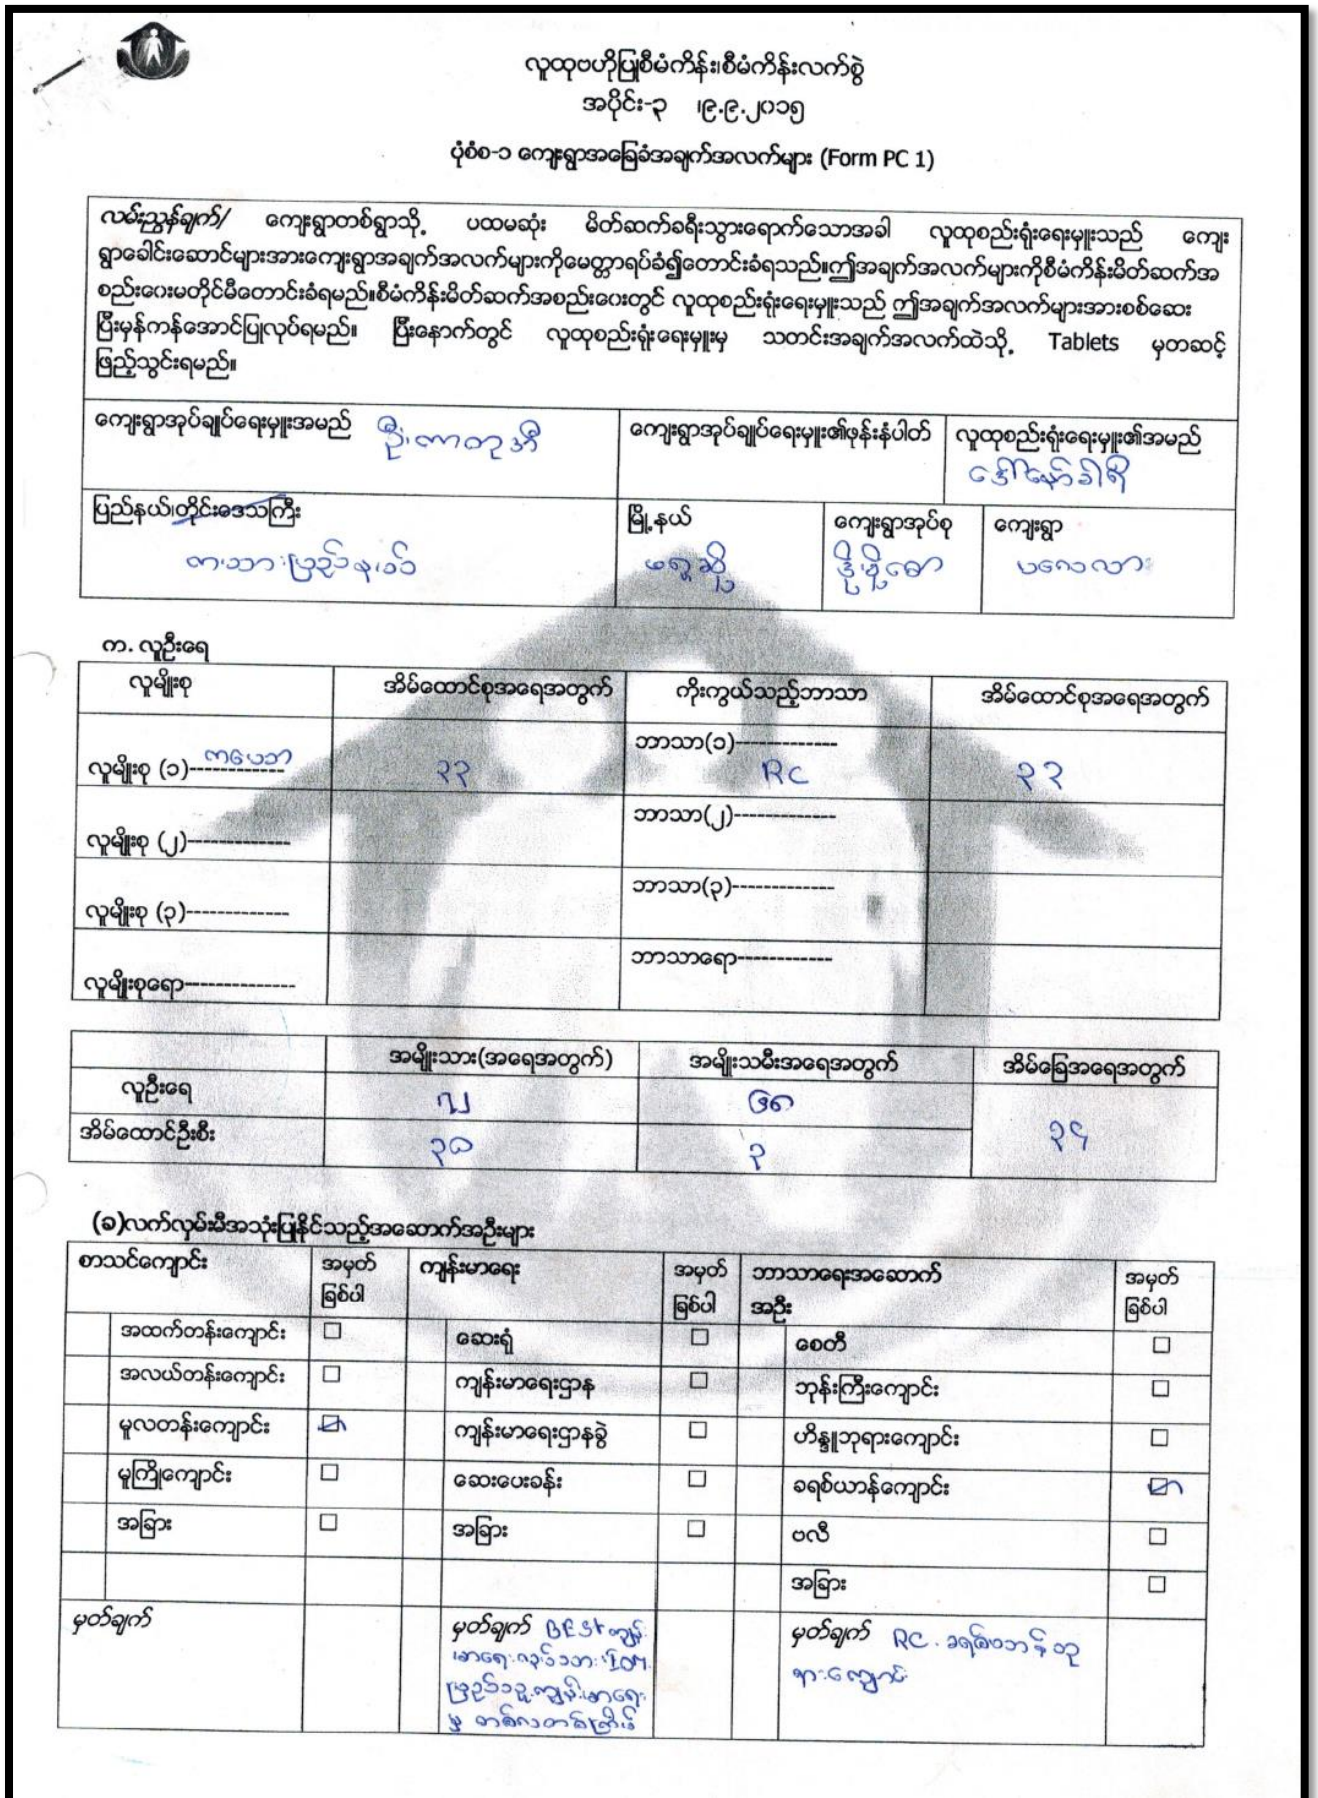 လူထုဗဟိုပြုစီမံကိန်း၊စီမံကိန်းလက်စွဲ
အပိုင်း-၃ ၊၉.၉.၂၀၁၅
ပုံစံစ-၁ ကျေးရွာအခြေခံအချက်အလက်များ (Form PC 1)
လမ်းညွှန်ချက်/ ကျေးရွာတစ်ရွာသို့ ပထမဆုံး မိတ်ဆက်ခရီးသွားရောက်သောအခါ လူထုစည်းရုံးရေးမှူးသည် ကျေး
ရွာခေါင်းဆောင်များအားကျေးရွာအချက်အလက်များကိုမေတ္တာရပ်ခံ၍တောင်းခံရသည်။ဤအချက်အလက်များကိုစီမံကိန်းမိတ်ဆက်အ
စည်းဝေးမတိုင်မီတောင်းခံရမည်။စီမံကိန်းမိတ်ဆက်အစည်းဝေးတွင် လူထုစည်းရုံးရေးမှူးသည် ဤအချက်အလက်များအားစစ်ဆေး
ပြီးမှန်ကန်အောင်ပြုလုပ်ရမည်။ ပြီးနောက်တွင် လူထုစည်းရုံးရေးမှူးမှ သတင်းအချက်အလက်ထဲသို့ Tablets မှတဆင့်
ဖြည့်သွင်းရမည်။
ကျေးရွာအုပ်ချုပ်ရေးမှူးအမည် ကျေးရွာအုပ်ချုပ်ရေးမှူး၏ဖုန်းနံပါတ် လူထုစည်းရုံးရေးမှူး၏အမည်
ဒေါ်နော်ခါရီ
ပြည်နယ်၊တိုင်းဒေသကြီး မြို့နယ် ကျေးရွာအုပ်စု ကျေးရွာ
ကယားပြည်နယ် ဖရူဆို မလေလား
က. လူဦးရေ
လူမျိုးစု အိမ်ထောင်စုအရေအတွက် ကိုးကွယ်သည့်ဘာသာ အိမ်ထောင်စုအရေအတွက်
လူမျိုးစု (၁)------------- ကယော ၃၃ ဘာသာ(၁)------------- RC ၃၃
လူမျိုးစု (၂)------------- ဘာသာ(၂)-------------
လူမျိုးစု (၃)------------- ဘာသာ(၃)-------------
လူမျိုးစုရော-------------- ဘာသာရော------------
အမျိုးသား(အရေအတွက်) အမျိုးသမီးအရေအတွက် အိမ်ခြေအရေအတွက်
လူဦးရေ ၇၂ ၆၈
အိမ်ထောင်ဦးစီး ၃၀ ၃ ၃၄
(ခ)လက်လှမ်းမီအသုံးပြုနိုင်သည့်အဆောက်အဦးများ
စာသင်ကျောင်း အမှတ် ကျန်းမာရေး အမှတ် ဘာသာရေးအဆောက် အမှတ်
ခြစ်ပါ ခြစ်ပါ အဦး ခြစ်ပါ
အထက်တန်းကျောင်း □ ဆေးရုံ □ စေတီ □
အလယ်တန်းကျောင်း □ ကျန်းမာရေးဌာန □ ဘုန်းကြီးကျောင်း □
မူလတန်းကျောင်း ☑ ကျန်းမာရေးဌာနခွဲ □ ဟိန္ဒူဘုရားကျောင်း □
မူကြိုကျောင်း □ ဆေးပေးခန်း □ ခရစ်ယာန်ကျောင်း ☑
အခြား □ အခြား □ ဗလီ □
အခြား □
မှတ်ချက် မှတ်ချက် မှတ်ချက် RC. ခရစ်ယာန်ဘု
ရားကျောင်း